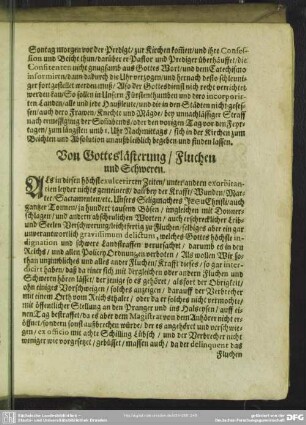 Sontag morgen vor der Predigt / zur Kirchen kommen / und ihre Confes-
sion und Beicht thun / darüber er Pastor und Prediger überhäuffet / die
Confitenten nicht gnugsamb aus Gottes Wort / und dem Catechismo
informiren / dann dadurch die Uhr verzogen / und hernach desto
fort gestellet werden muß / Also der Gottesdienst nicht recht verrichtet
werden kan / So sollen in Unsern Fürstenthumben und dero incorporir-
ten Landen / alle und jede Haußleute / und die in den Städten nicht
sen / auch dero Frawen / Knechte und Mägde / bey unnachlässiger Straff
nach ermässigung der Sonnabends oder den vorigen Tag vor den Feyr-
tagen / zum längsten umb 1. Uhr Nachmittags / sich in der Kirchen zum
Beichten und Absolution unaußbleiblich begeben und finden lassen.
Von Gotteslästerung / Fluchen
und Schweren.
ALs in diesen höchst exulcerirten Zeiten / unter andern exorbitan-
tien leyder nichts gemeiners / da bey der Krafft / Wunden / Mar-
ter Sacramenten / etc. Unsers Seligmachers Jesu Christi / auch
gantzer Tonnen / ja hundert tausend Bösen / imgleichen mit Donner-
schlagen / und andern abschewlichen Worten / auch erschrecklicher Leib
und Seelen Verschwerung / leichtfertig zu Fluchen / selbiges aber ein gar
unverantwortlich gravissimum delictum, welches Gottes höchste in-
dignation und schwere Landstraffen verursachet / darumb es in den
Reichs / und allen Policey Ordnungen verboten / Als wollen Wir so-
than ungewöhnlich und alles ander Fluchen / Krafft dieses / so gar inter-
dicirt haben / daß da einer sich mit dergleichen oder andern Fluchen und
Schweren hören lässet / der jenige so es gehöret / alsofort der Obrigkeit /
ohn einiges Vorschweigen / solches anzeigen / darauff der Verbrecher
mit einem Orth vom Reichsthaler / oder da er solches nicht vermöchte
mit öffentlicher Stellung an den Pranger und ins Halseysen / auff ei-
nen Tag bestraffet / da es aber dem Magistrat von dem Anhörer nicht er-
öffnet / sondern sonst außbrechen würde / der es angehöret und verschwie-
gen / ex officio mit achte Schilling Lübsch / und der Verbrecher nicht
weniger wie vorgesetzet / gebüsset / massen auch / da der delinquent das
Fluchen